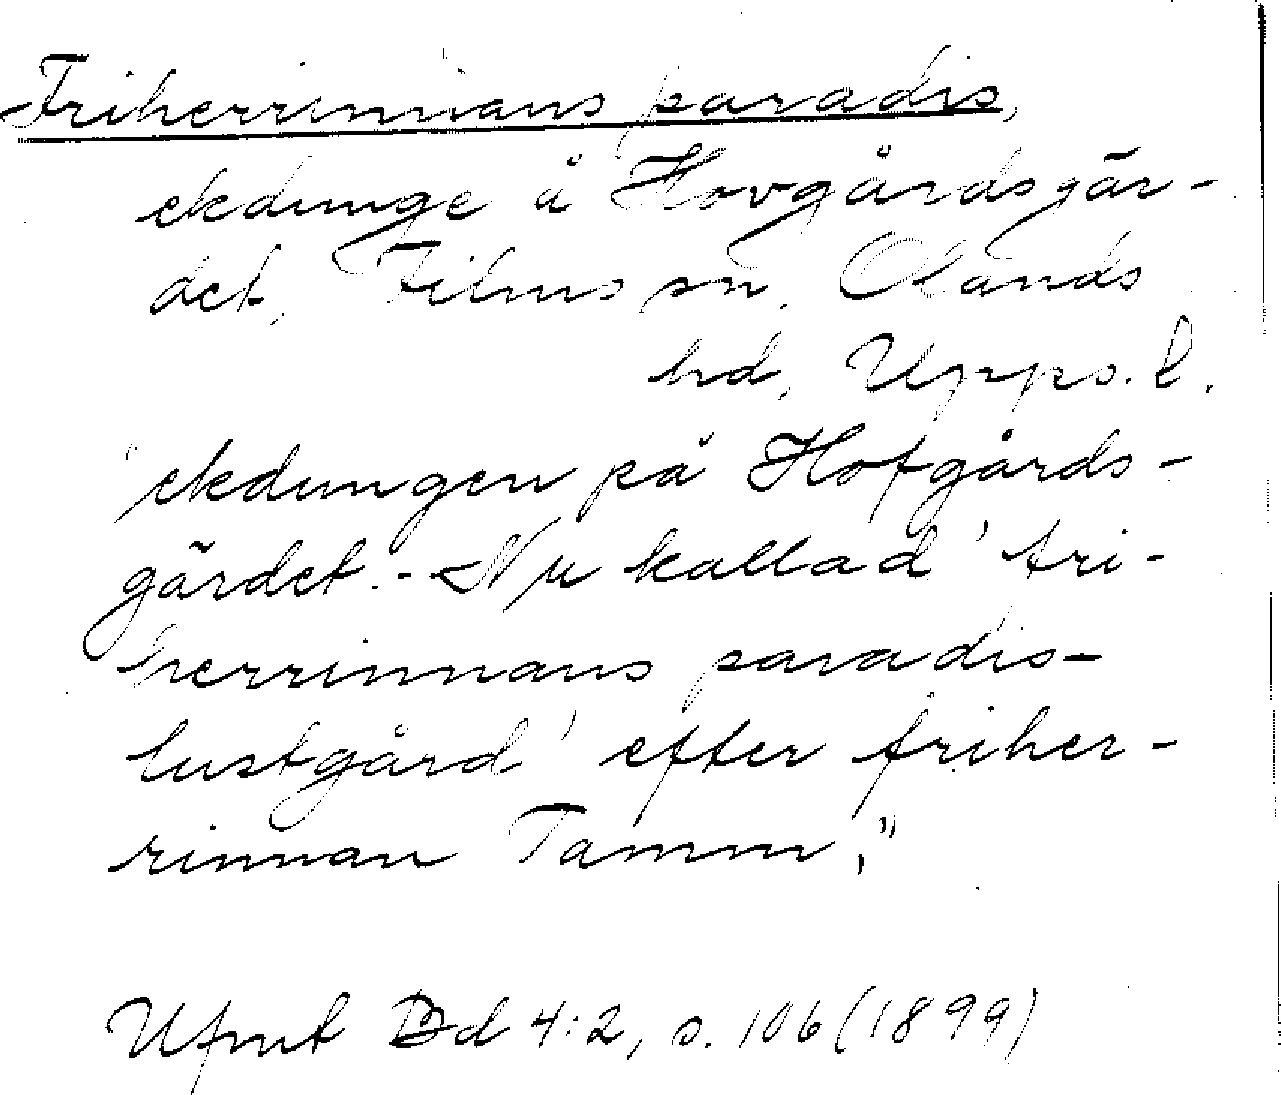 Friherrinnans paradis,
ekdunge å Hovgårdsgär-
det, Films sn, Olands
hd, Upps. l.
"ekdungen på Hofgårds-
gärdet. - Nu kallad 'fri-
herrinnans paradis-
lustgård' efter friher-
rinnan Tamm,"
Ufmt Bd 4:2, s. 106 (1899)